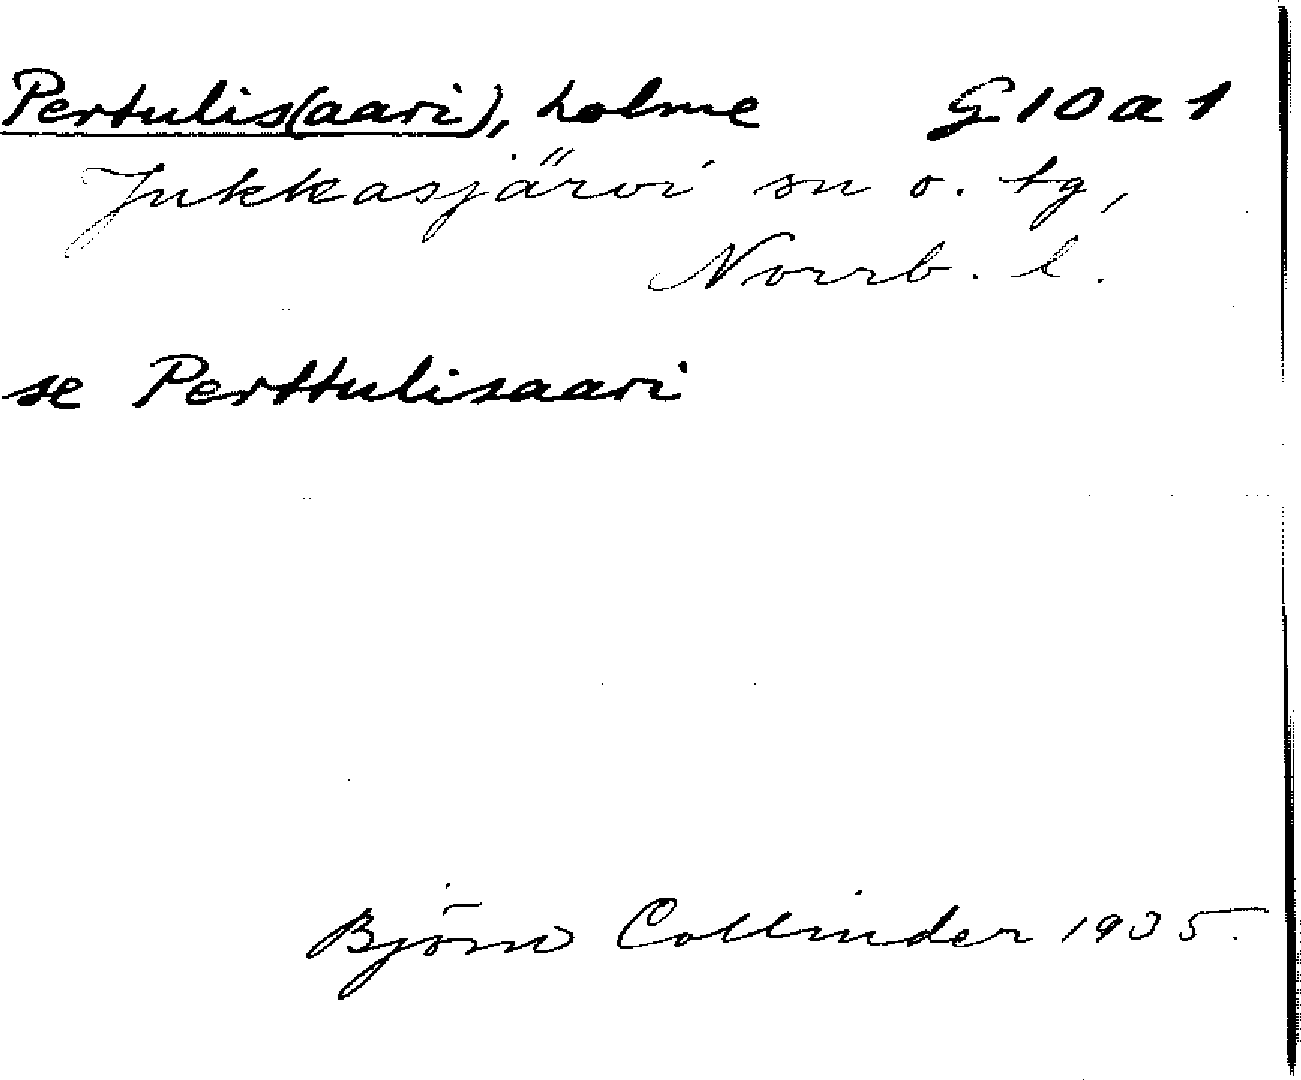 Pertulis(aari), holme G 10 a 1
Jukkasjärvi sn o. tg,
Norrb. l.
se Perttulisaari
Björn Collinder 1935.